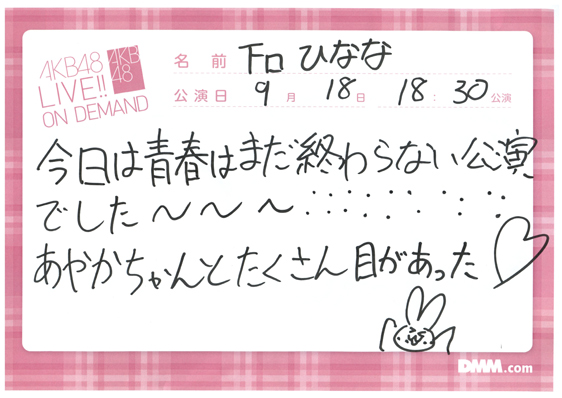 AKB48
LIVE!!
ON DEMAND
AKB
48
名前 下口ひなな
公演日 9月18日 18:30公演
今日は青春はまだ終わらない公演
でした〜〜〜∵∴∵∴∵∴∵
あやかちゃんとたくさん目があった♡
DMM.com